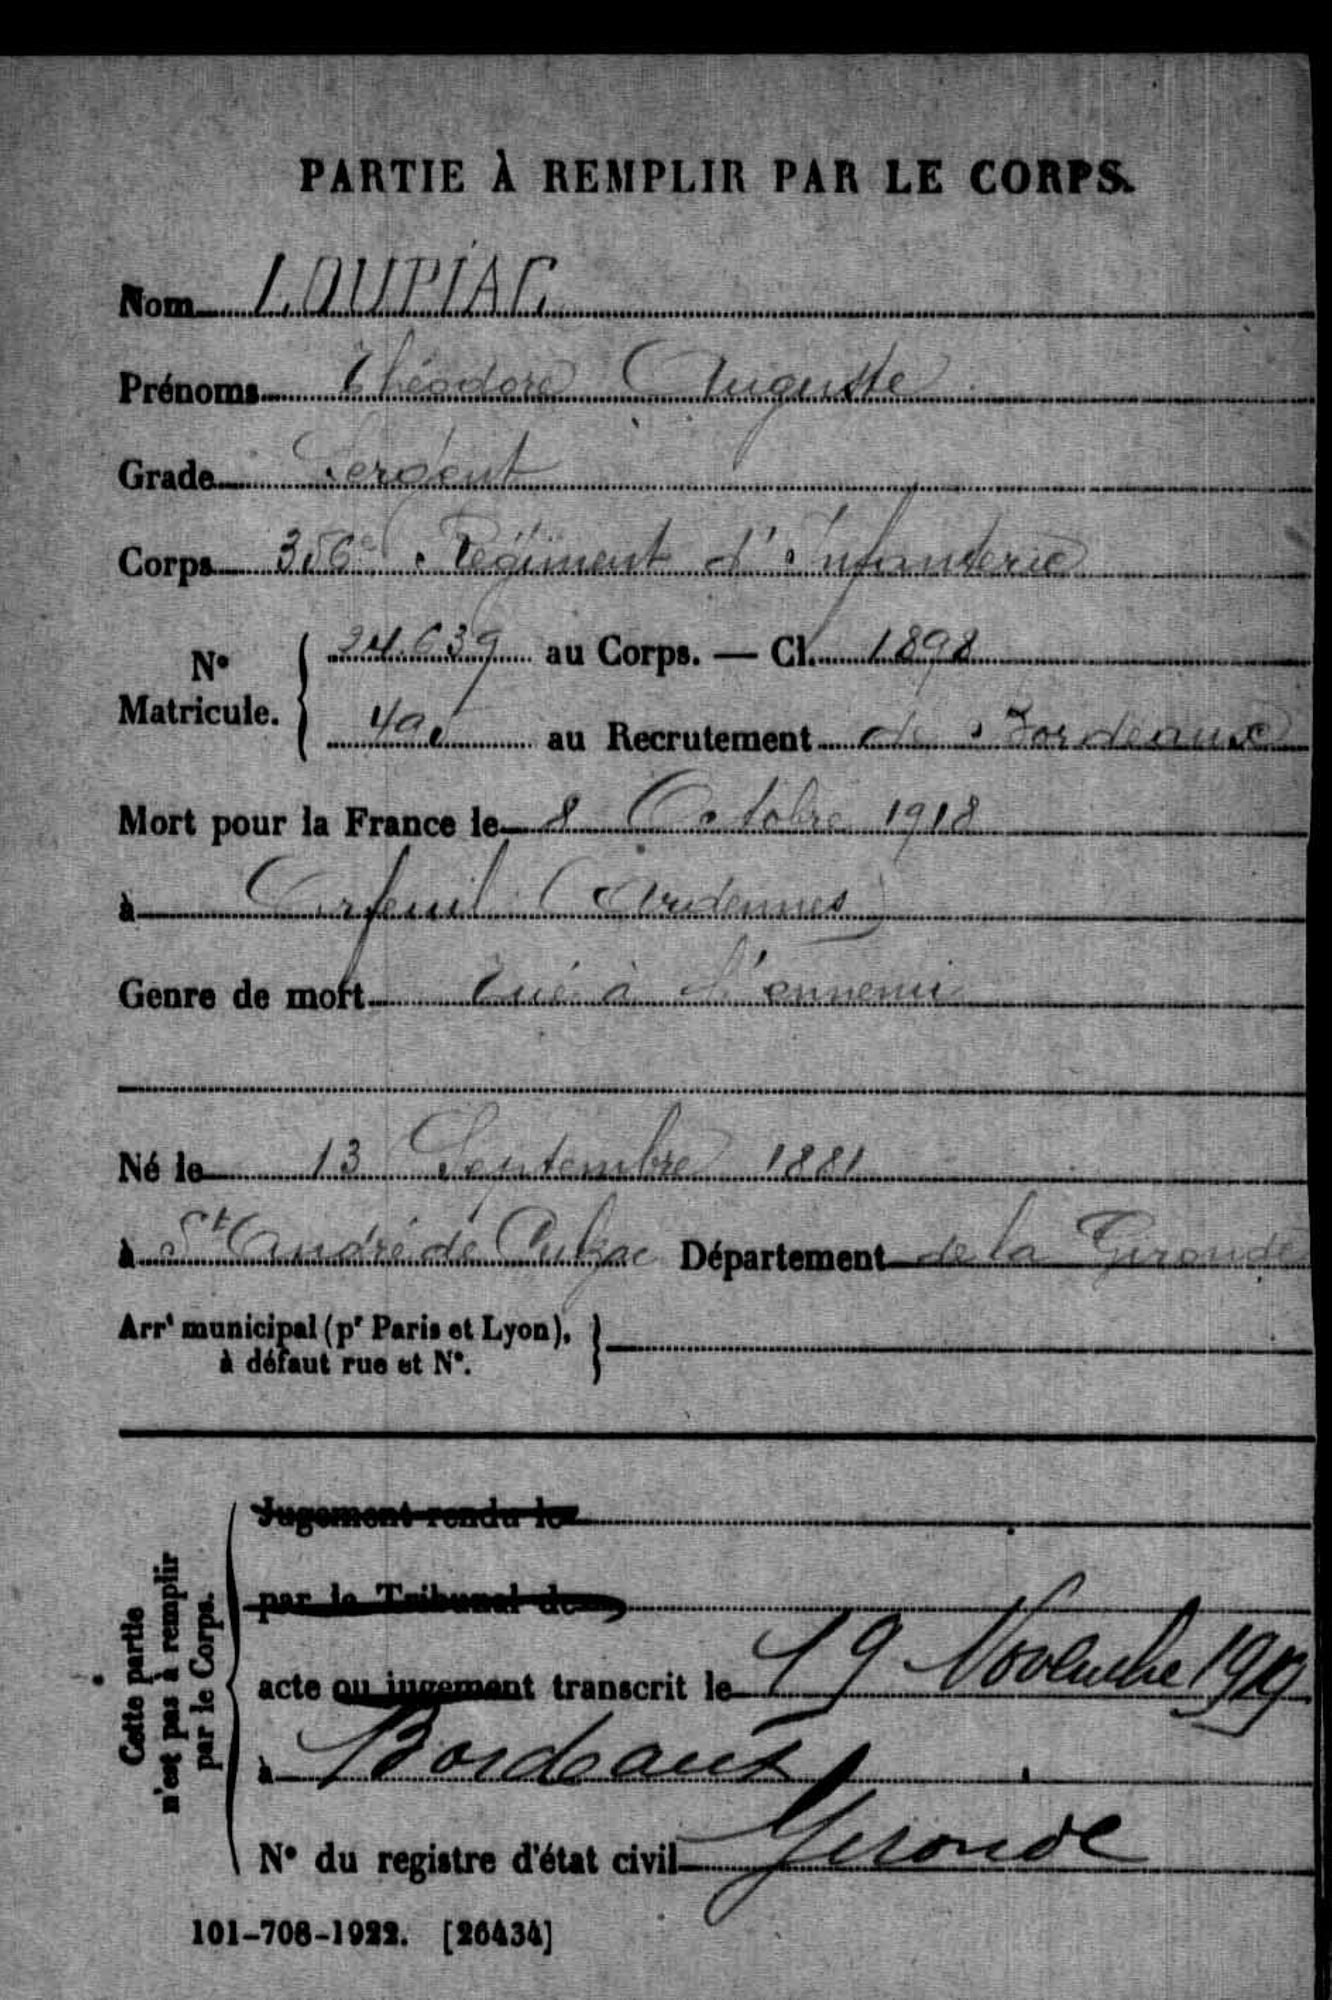 PARTIE À REMPLIR PAR LE CORPS.
Nom LOUPIAC
Prénoms Théodore Auguste
Grade Sergent
Corps 356e Régiment d'Infanterie
N° Matricule. 24639 au Corps. — Cl. 1898
au Recrutement de Bordeaux
Mort pour la France le 8 Octobre 1918
à Orfeuil (Ardennes)
Genre de mort Tué à l'ennemi
Né le 13 Septembre 1881
à St André de Cubzac Département de la Gironde
Arrt municipal (pr Paris et Lyon),
à défaut rue et N°.
Cette partie
n'est pas à remplir
par le Corps.
Jugement rendu le
par le Tribunal de
acte ou jugement transcrit le 19 Novembre 1919
à Bordeaux
N° du registre d'état civil Gironde
101-708-1922. [26434]